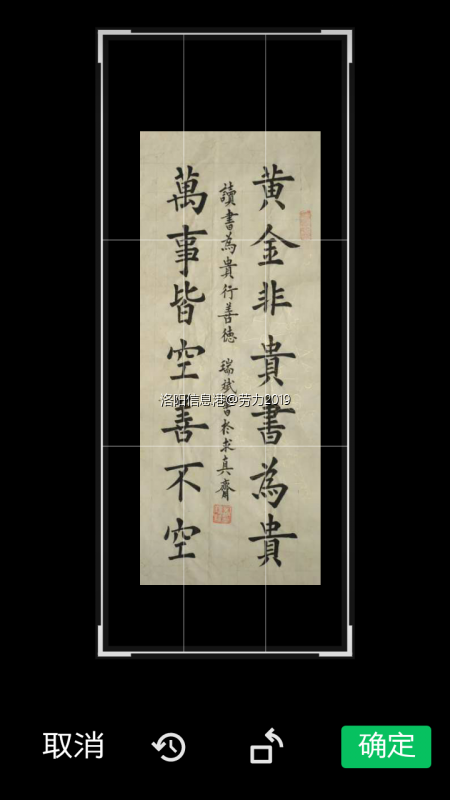 黄金非貴書為貴
讀書為貴行善德 瑞斌書於求真齋
萬事皆空善不空
洛阳信息港@劳力2019
取消
确定